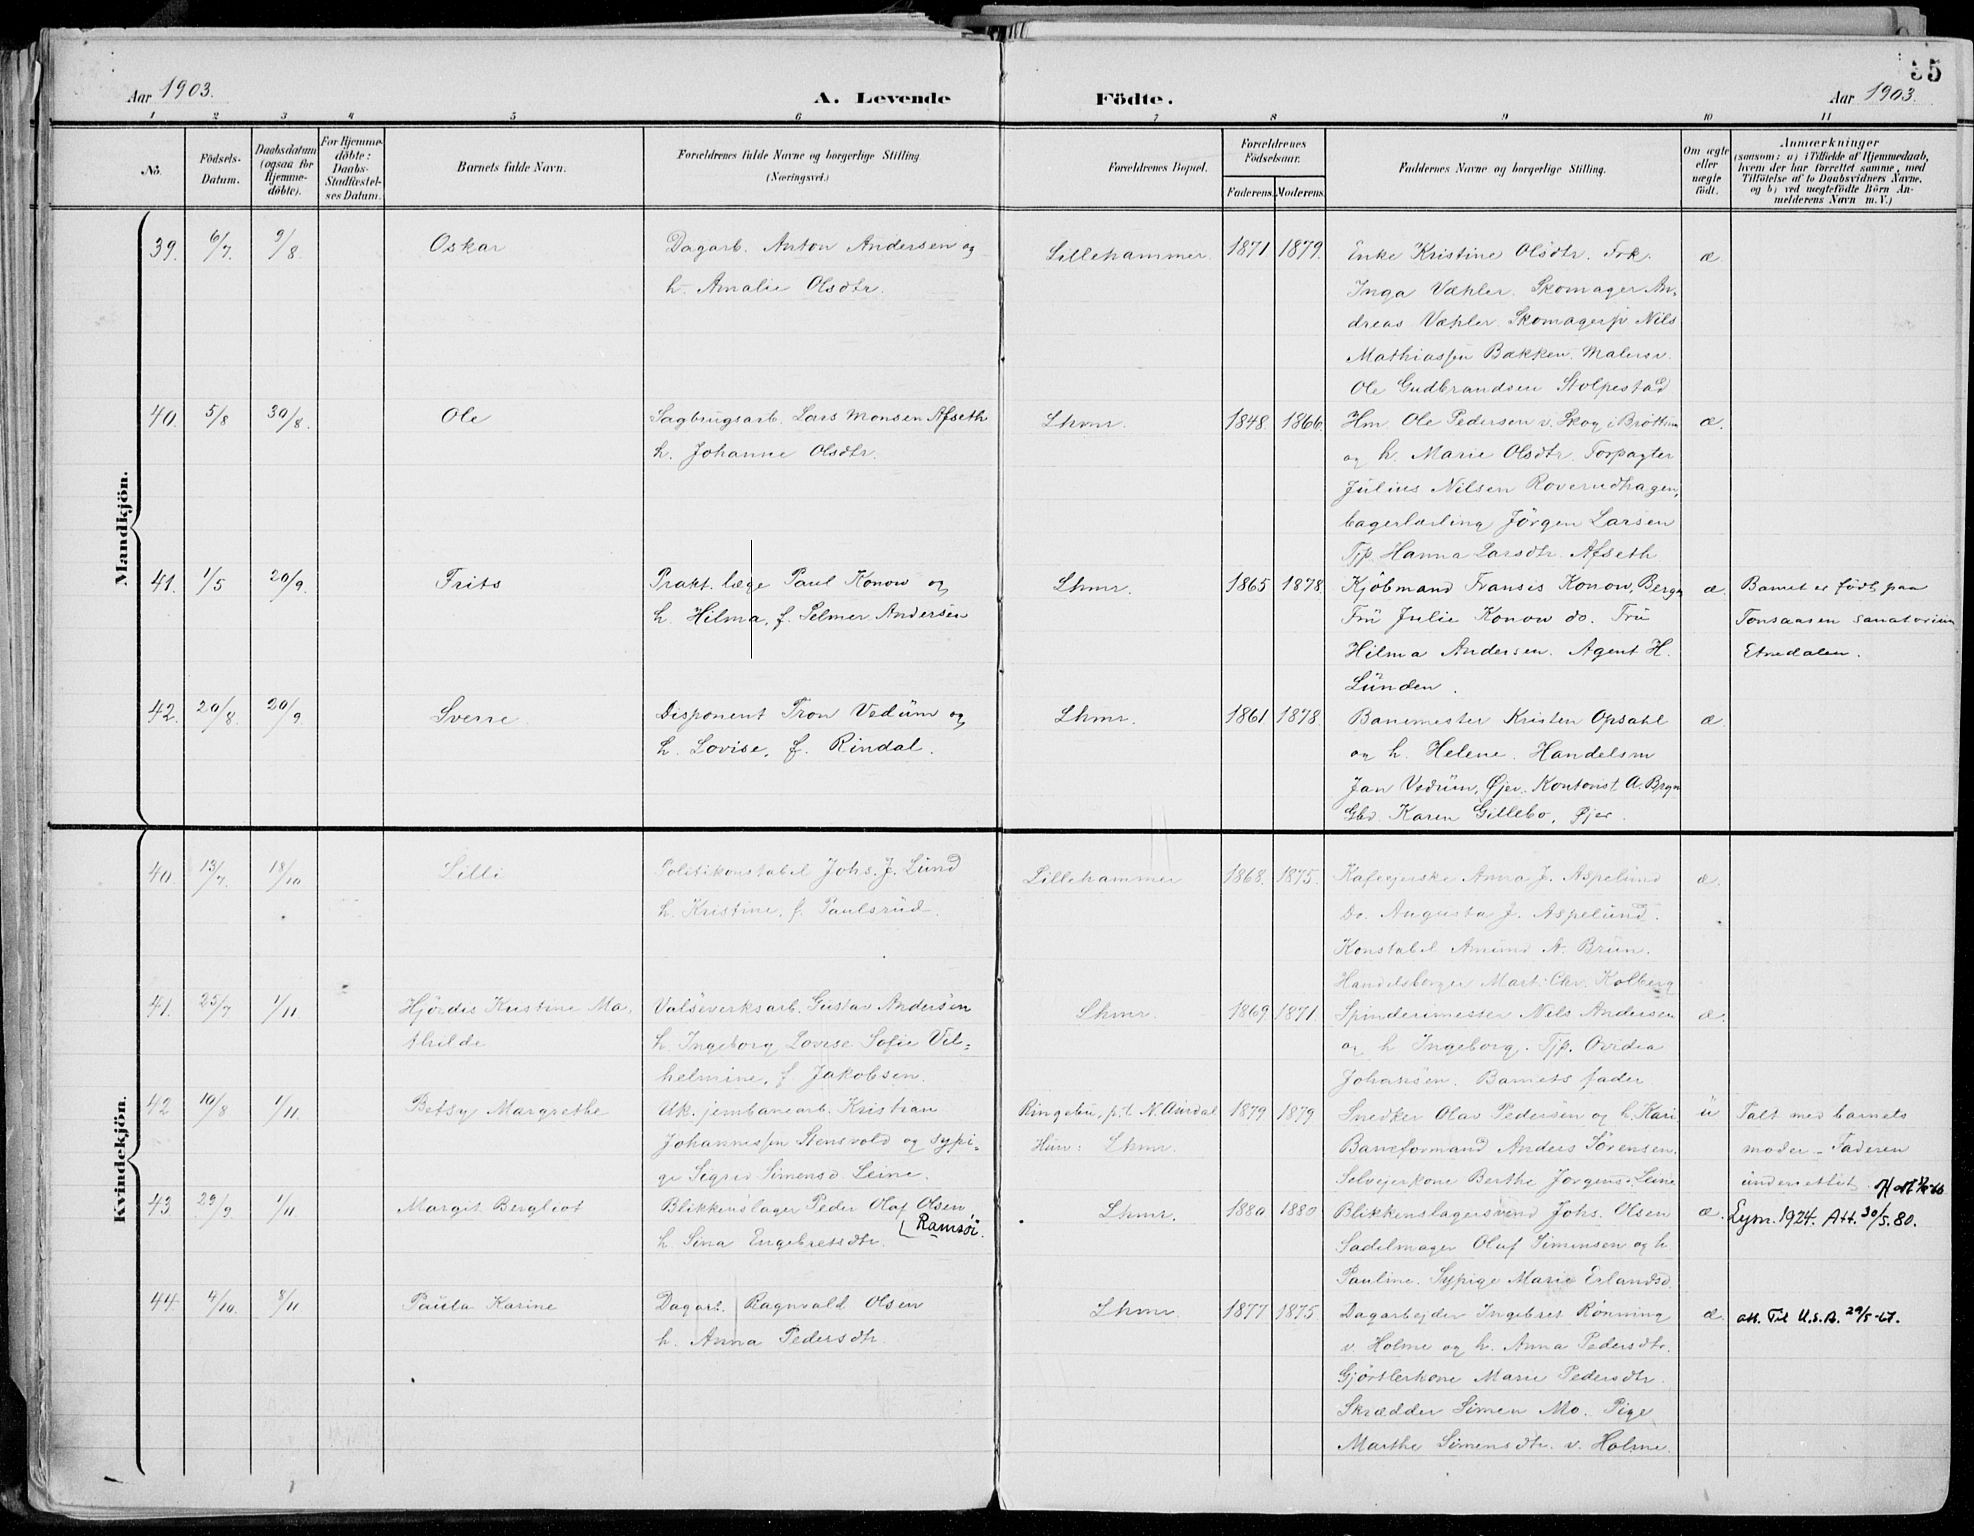 55
Aar 1903.
A. Levende Födte.
Aar 1903.
1 2 3 4 5 6 7 8 9 10 11
No.
Födsels-Datum.
Daabsdatum (ogsaa for Hjemme-döbte).
For Hjemme-döbte: Daabs-Stadfæstel-ses Datum.
Barnets fulde Navn.
Forældrenes fulde Navne og borgerlige Stilling (Næringsvei.)
Forældrenes Bopæl.
Forældrenes Födselsaar.
Faderens. Moderens.
Faddernes Navne og borgerlige Stilling.
Om ægte eller uægte födt.
Anmærkninger
(saasom: a) i Tilfælde af Hjemmedaab,
hvem der har forrettet samme, med
Tilföielse af to Daabsvidners Navne.
og b) ved uægtefödte Börn An-
melderens Navn m. V.)
Mandkjön.
39. 6/7. 9/8 Oskar Dagarb. Anton Andersen og Lillehammer. 1871 1879. Enke Kristine Olsdtr. Frk. æ
h. Amalie Olsdtr. Inga Væhler. Skomager An-
dreas Væhler. Skomagersv Nils
Mathiassen Bakken. Malersv.
Ole Gudbrandsen Stolpestad
40. 5/8 30/8. Ole Sagbrugsarb. Lars Monsen Afseth Lhmr. 1848. 1866. Hm. Ole Pedersen v. Skog i Brøttum æ.
h. Johanne Olsdtr. og h. Marie Olsdtr. Forpagter
Julius Nilsen Roverudhagen,
bagerlærling Jörgen Larsen
Tjp. Hanna Larsdtr. Afseth
41. 1/5 20/9. Frits Prakt. læge Paul Konow og Lhmr. 1865 1878. Kjöbmand Fransis Konow, Bergn æ. Barnet er født paa
h. Hilma, f. Selmer Andersen Frü Julie Konow do. Frü Tonsaasen sanatorium
Hilma Andersen. Agent H. Etnedalen.
Lünden.
42. 20/8. 20/9 Sverre. Disponent Tron Vedüm og Lhmr. 1861 1878. Banemester Kristen Opsahl æ
h. Lovise, f. Rindal. og h. Helene. Handelsm
Jan Vedüm, Øjer. Kontorist A. Bergn
Gbd. Karen Gillebo, Øjer.
Kvindekjön.
40. 13/7. 18/10 Lilli Politikonstabel Johs. J. Lünd Lillehammer 1868. 1875. Kafeejerske Anna J. Aspelünd æ.
h. Kristine, f. Paulsrüd. Do. Augusta J. Aspelünd.
Konstabel Amünd A. Brüün.
Handelsborger Mart. Chr. Kolberg
41. 25/7 1/11 Hjördis Kristine Ma- Valseverksarb. Gustav Andersen Lhmr. 1869 1871. Spinderimester Nils Andersen æ.
thilde h. Ingeborg Lovise Sofie Vil= og h Ingeborg. Tjp. Ovidia
helmine, f Jakobsen. Johansen. Barnets fader
42 10/8 1/11. Betsy Margrethe Uk. jernbanearb. Kristian Ringebu, p.t. N. Aurdal 1879 1879 Snedker Olav Pedersen og h. Kari ü Talt med barnets
Johannessen Stensvold og sypi- Hun: Lhmr. Baneformand Anders Sörensen. moder – Faderen
ge Sigrid Simensd. Leine. Selvejerkone Berthe Jörgens. Leine underrettet.
43 29/9 1/11. Margit Bergliot Blikkenslager Peder Olaf Olsen Lhmr. 1880 1880 Blikkenslagersvend Johs. Olsen æ. Lysn. 1924. Att. 30/5.80.
Ramsöi.
h. Sina Engebretsdtr. Sadelmager Oluf Simensen og h.
Pauline. Sypige Marie Erlandsd.
44. 4/10. 8/11 Paula Karine Dagarb. Ragnvald Olsen Lhmr. 1877 1875. Dagarbejder Ingebret Rönning æ. att. Til U.S.A. 29/5-67.
h. Anna Pedersdtr. v. Holme og h. Anna Pedersdtr.
Gjörtlerkone Marie Pedersdtr.
Skrædder Simen Mo. Pige
Marthe Simensdtr. v. Holme.